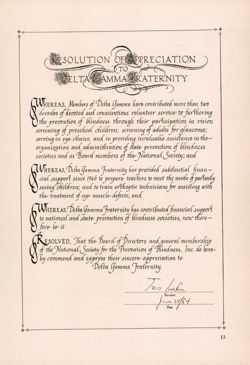 RESOLUTION OF APPRECIATION
TO
DELTA GAMMA FRATERNITY
WHEREAS, Members of Delta Gamma have contributed more than two
decades of devoted and conscientious volunteer service to furthering
the prevention of blindness through their participation in vision
screening of preschool children; screening of adults for glaucoma;
serving in eye clinics; and in providing invaluable assistance in the
organization and administration of state prevention of blindness
societies and as Board members of the National Society; and
WHEREAS, Delta Gamma Fraternity has provided substantial finan-
cial support since 1946 to prepare teachers to meet the needs of partially
seeing children; and to train orthoptic technicians for assisting with
the treatment of eye muscle defects; and
WHEREAS, Delta Gamma Fraternity has contributed financial support
to national and state prevention of blindness societies, now there-
fore be it
RESOLVED, That the Board of Directors and general membership
of the National Society for the Prevention of Blindness, Inc. do here-
by commend and express their sincere appreciation to
Delta Gamma Fraternity.
President
Date
13